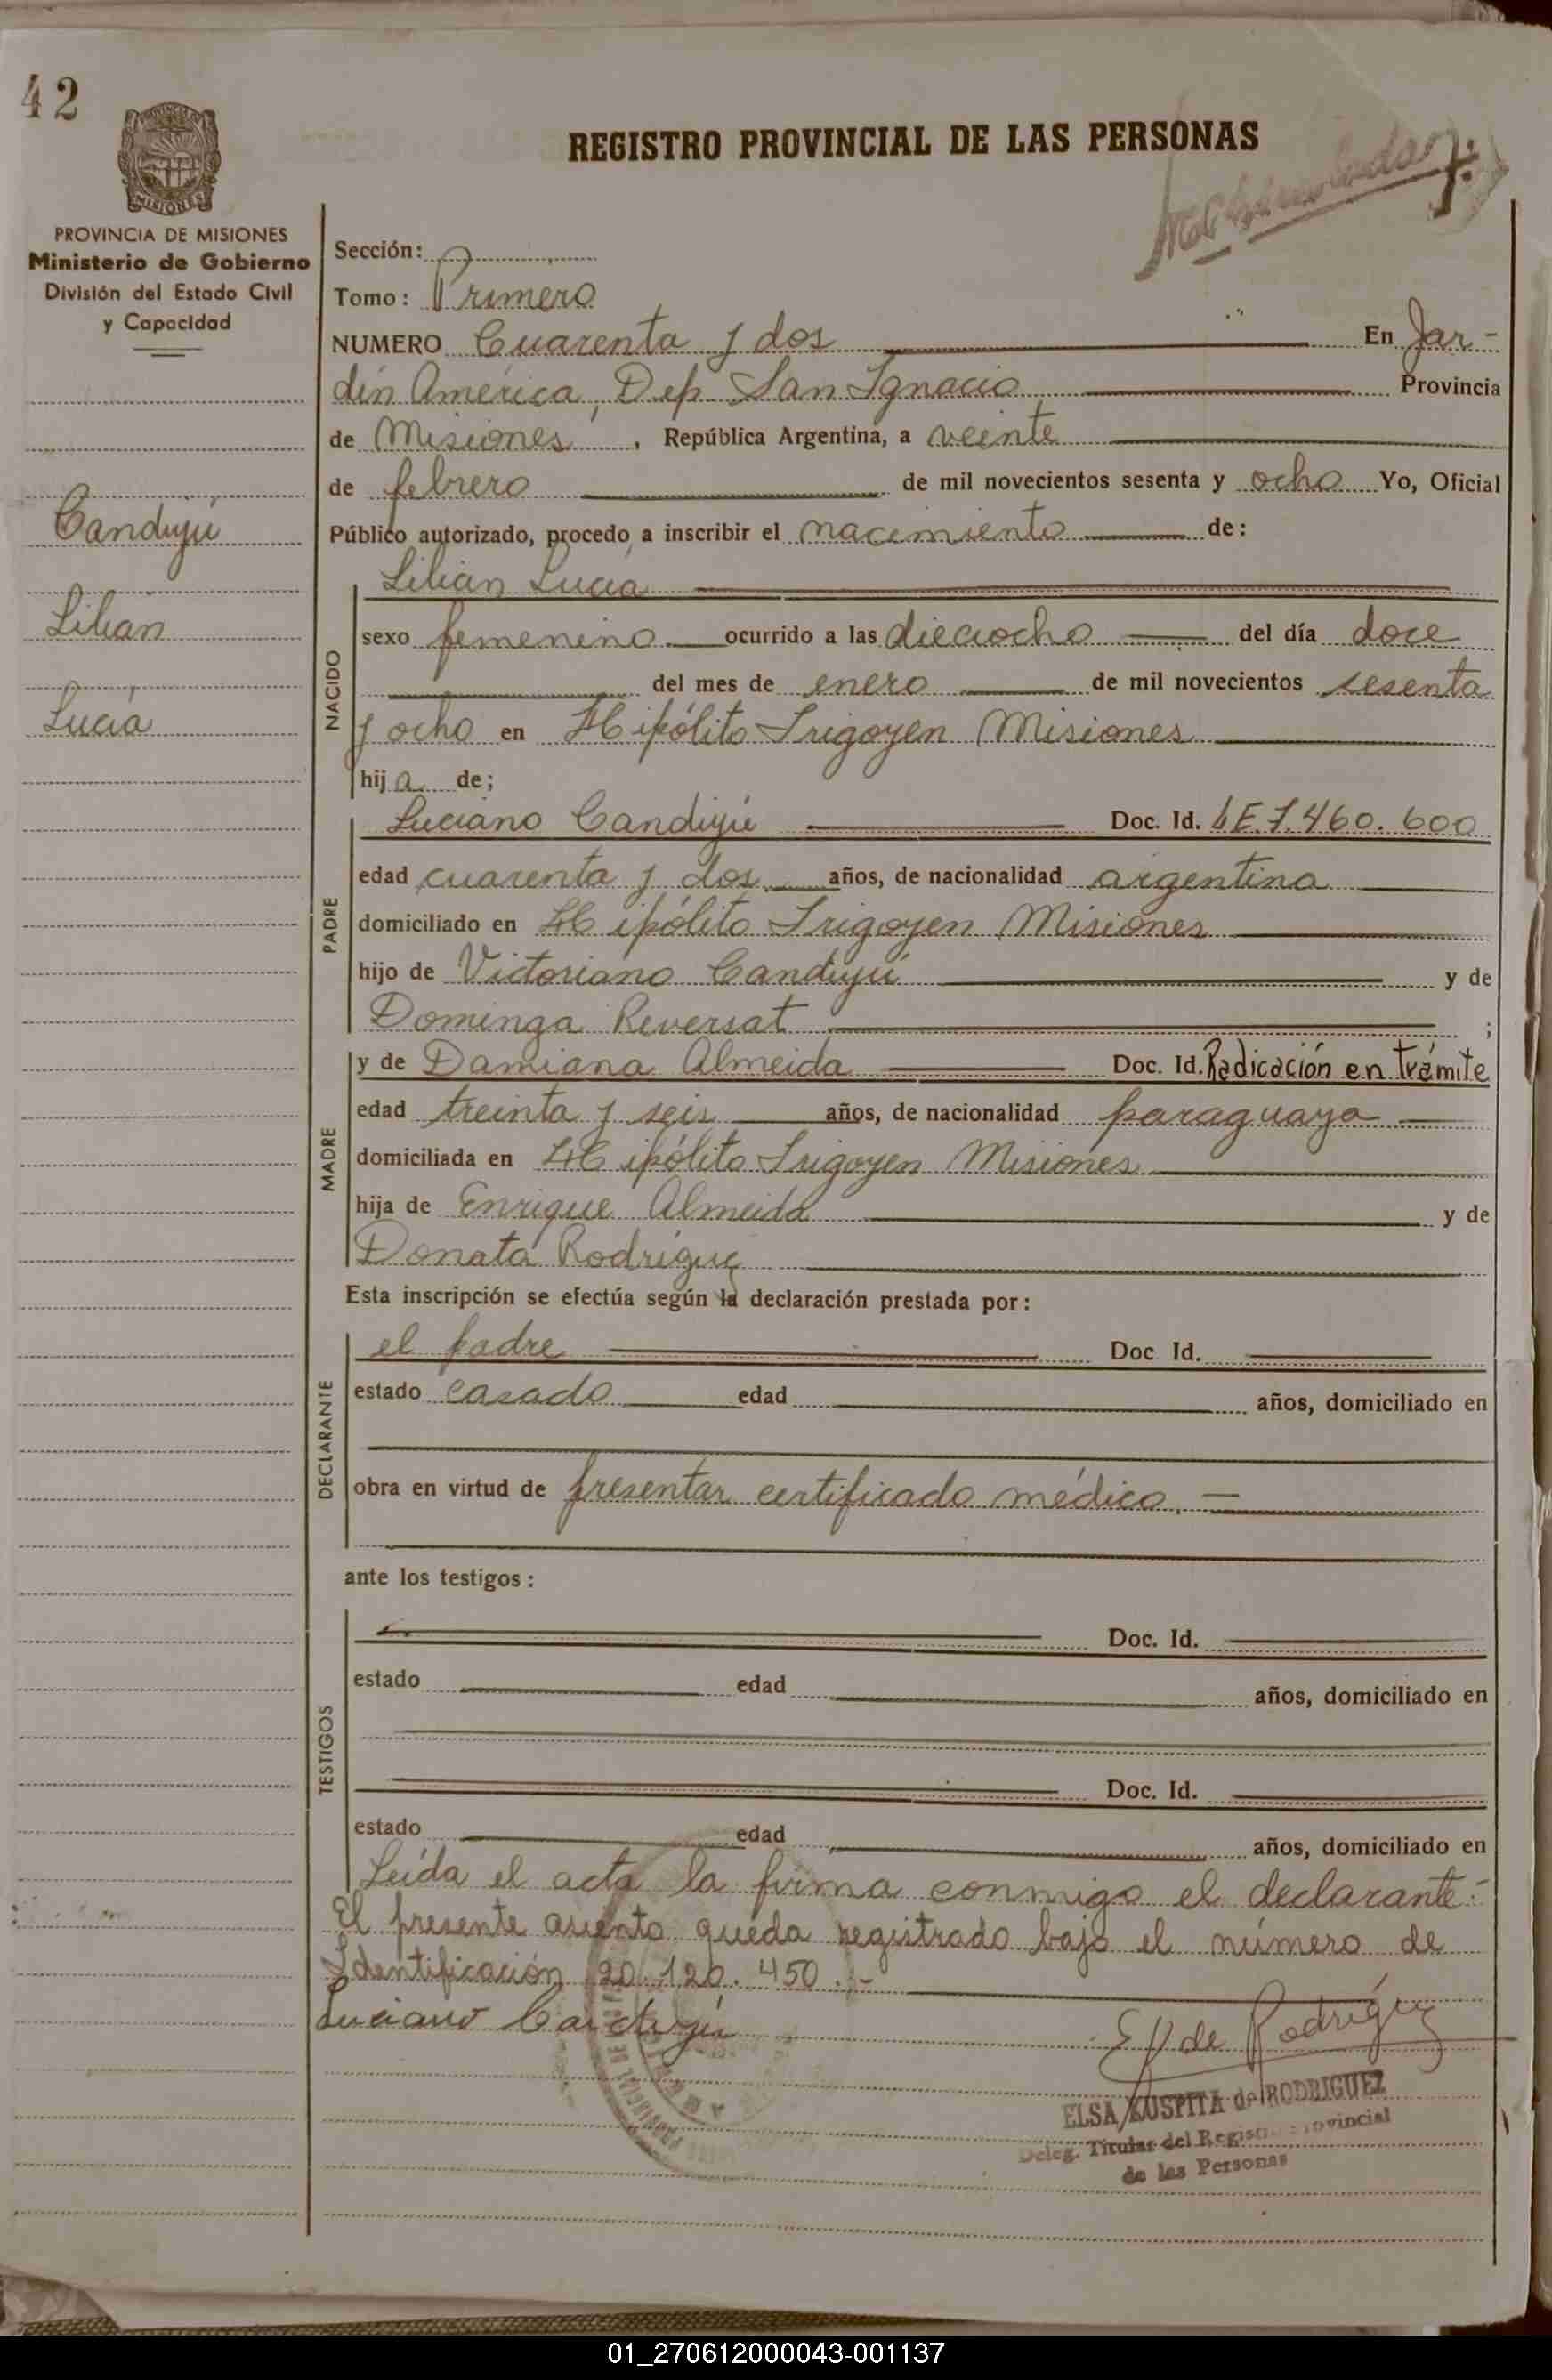 42
REGISTRO PROVINCIAL DE LAS PERSONAS
PROVINCIA DE MISIONES
Ministerio de Gobierno
División del Estado Civil
y Capacidad
Canduyú
Lilian
Lucía
Sección:
Tomo: Primero
NUMERO Cuarenta y dos En Jar-
dín América, Dep. San Ignacio Provincia
de Misiones, República Argentina, a veinte
de febrero de mil novecientos sesenta y ocho Yo, Oficial
Público autorizado, procedo a inscribir el nacimiento de:
Lilian Lucía
NACIDO
sexo femenino ocurrido a las dieciocho del día doce
del mes de enero de mil novecientos sesenta
y ocho en Hipólito Irigoyen Misiones
hija de;
PADRE
Luciano Canduyú Doc. Id. LE.7.460.600
edad cuarenta y dos años, de nacionalidad argentina
domiciliado en Hipólito Irigoyen Misiones
hijo de Victoriano Canduyú y de
Dominga Reversat ;
MADRE
y de Damiana Almeida Doc. Id. Radicación en trámite
edad treinta y seis años, de nacionalidad paraguaya
domiciliada en Hipólito Irigoyen Misiones
hija de Enrique Almeida y de
Donata Rodríguez
Esta inscripción se efectúa según la declaración prestada por:
DECLARANTE
el padre Doc. Id.
estado casado edad años, domiciliado en
obra en virtud de presentar certificado médico.-
ante los testigos:
TESTIGOS
Doc. Id.
estado edad años, domiciliado en
Doc. Id.
estado edad años, domiciliado en
Leída el acta la firma conmigo el declarante.-
El presente asiento queda registrado bajo el número de
Identificación 20.120.450.-
Luciano Canduyú
E K de Rodríguez
ELSA KUSPITA de RODRIGUEZ
Deleg. Titular del Registro Provincial
de las Personas
01_270612000043-001137